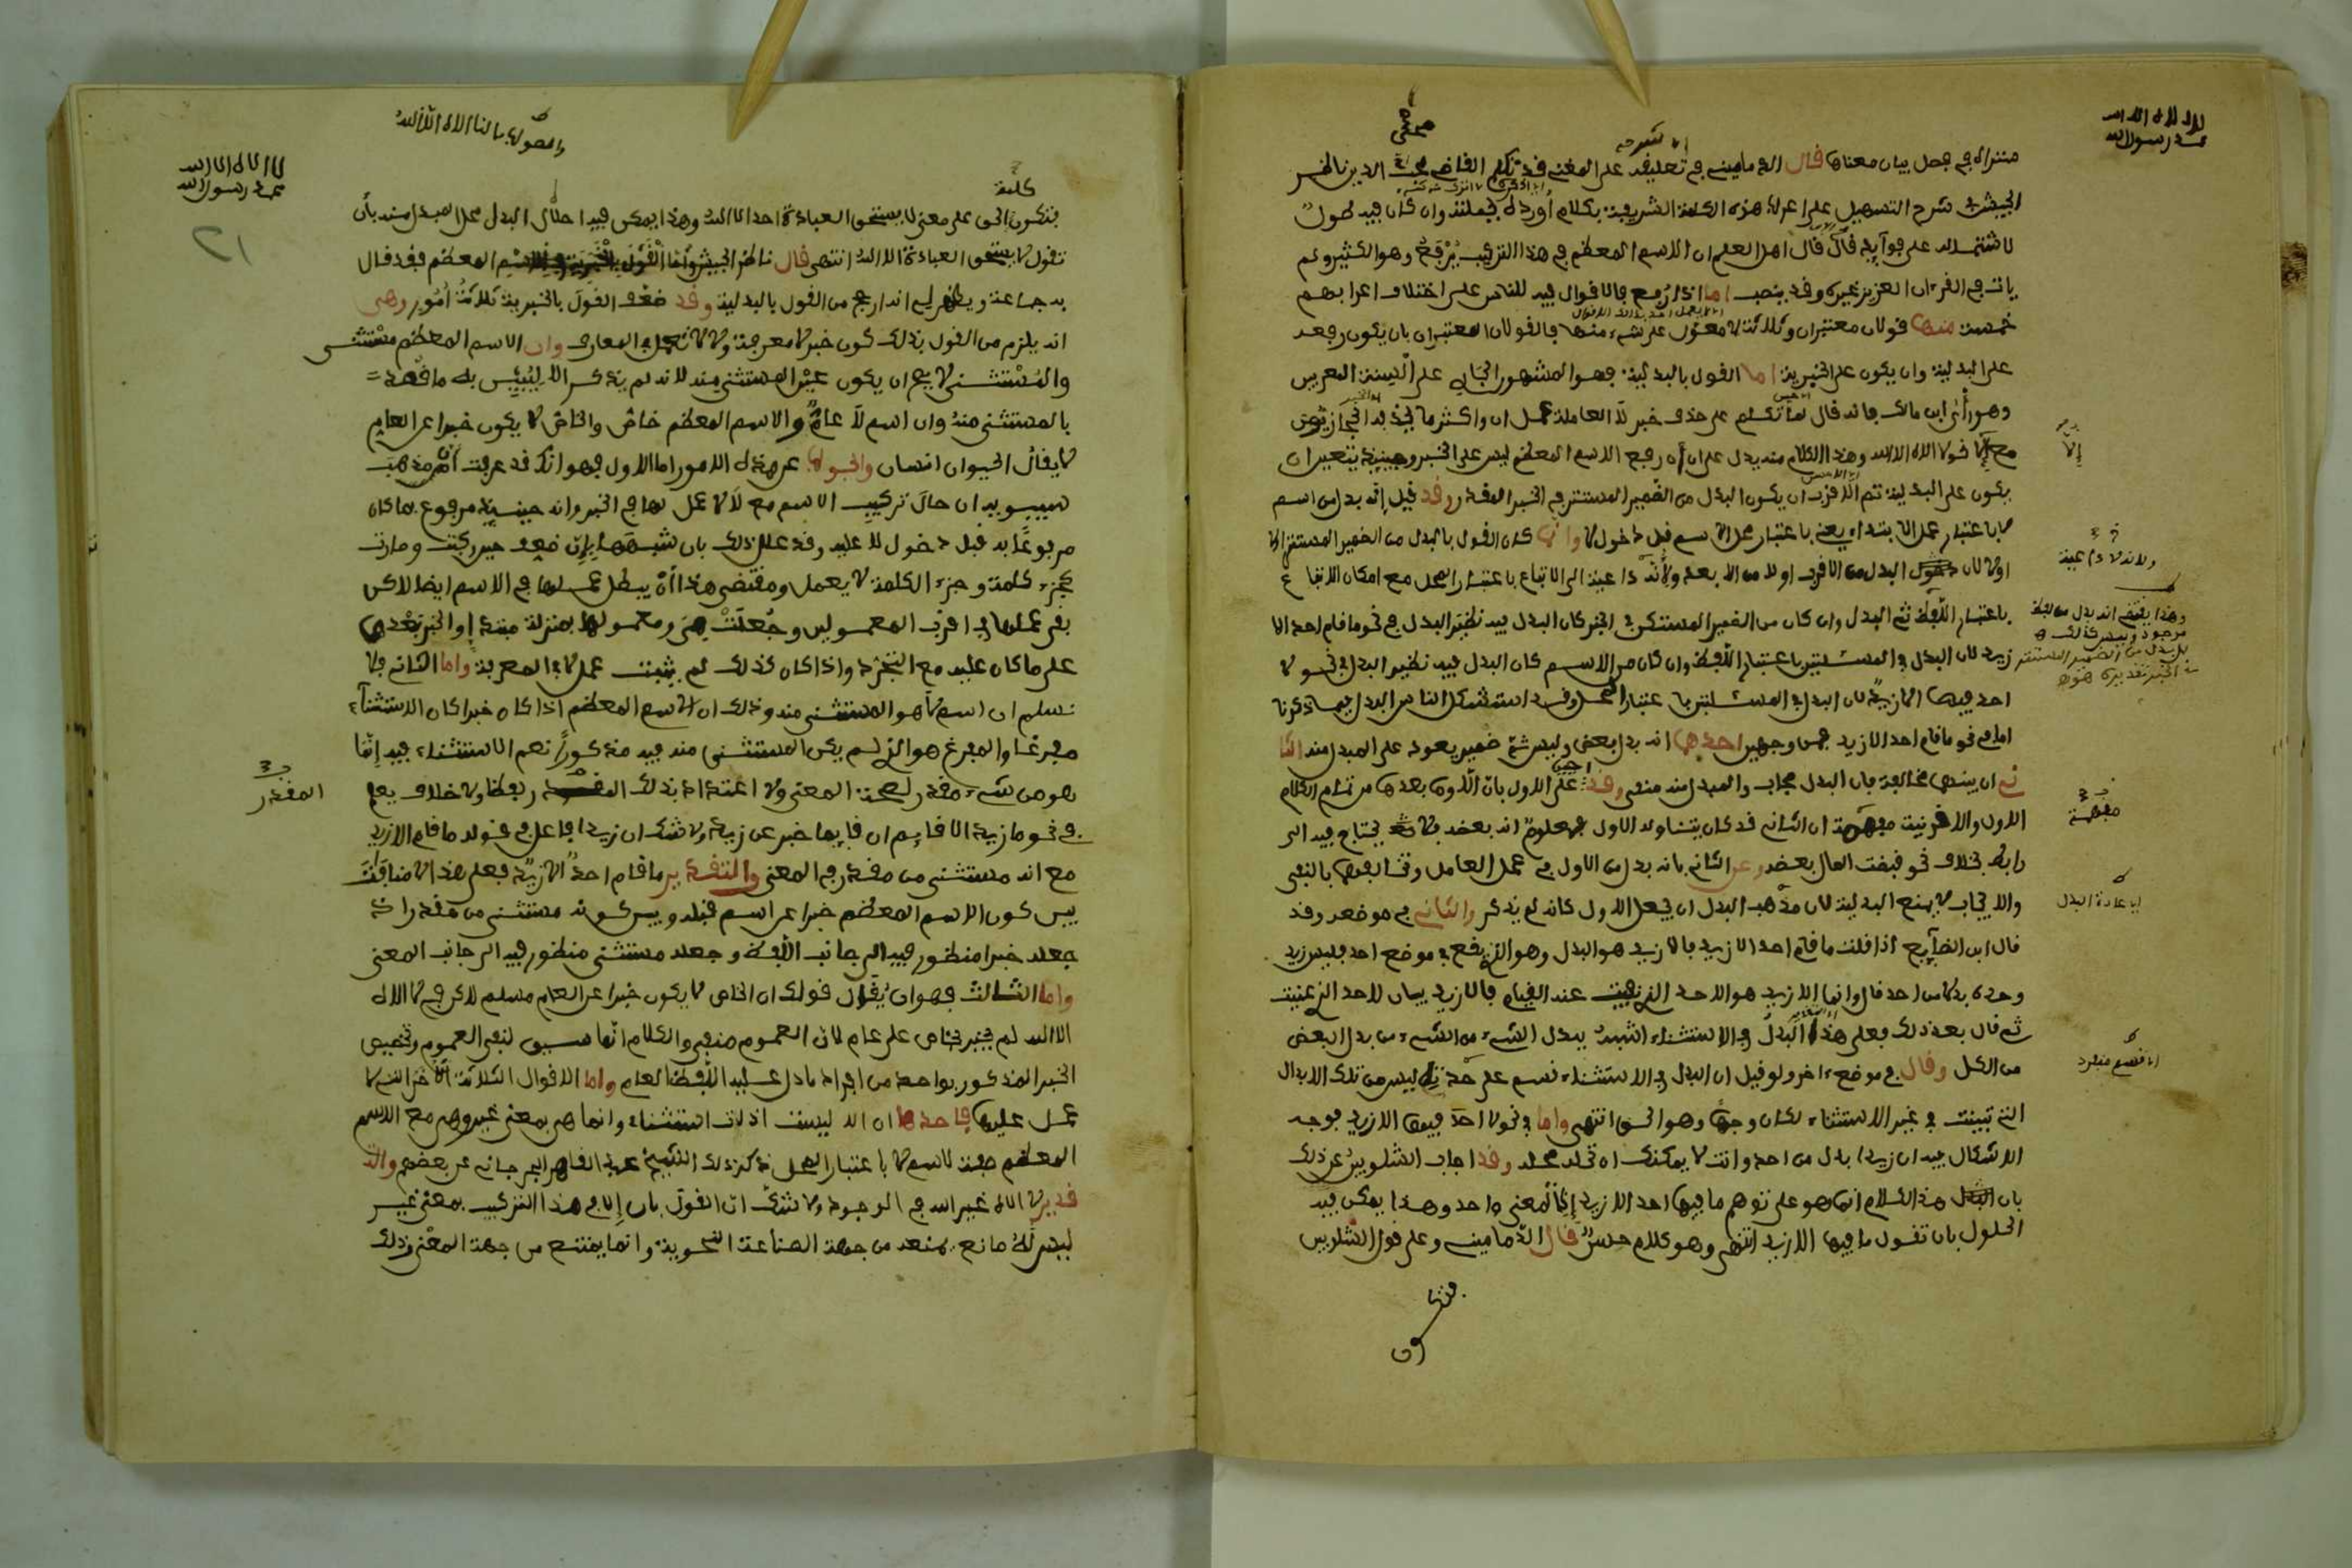 لا اله الا الله
محمد رسول الله
منتزاله في فصل بيان معناها قال الدماميني في تعليقه على المغني قد تكلم القاضي محب الدين ناظر
الجيش في شرح التسهيل على اعراب هذه الكلمة الشريفة بكلام اورده بجملته وان كان فيه طول
لاشتماله على فوايد قال قال اهل العلم ان الاسم المعظم في هذا التركيب يرفع وهو الكثير ولم
يات في القرءان العزيز غيره وقد ينصب اما اذا رفع فالاقوال فيه للناس على اختلاف اعرابهم
خمسة منها قولان معتبران وثلاثة لا معول على شيء منها فالقولان المعتبران بان يكون رفعه
على البدلية وان يكون على الخبرية اما القول بالبدلية فهو المشهور الجاري على السنة المعربين
وهو رأي ابن مالك فانه قال لما تكلم على حذف خبر لا العاملة عمل ان واكثر ما يحذفه الحجازيون
مع إلا نحو لا اله الا الله وهذا الكلام منه يدل على ان رفع الاسم المعظم ليس على الخبر وحينيذ يتعين ان
يكون على البدلية ثم الاقرب ان يكون البدل من الضمير المستتر في الخبر المقدر وقد قيل إنه بدل من اسم
لا باعتبار عمل الابتداء يعني باعتبار محل الاسم قبل دخول لا وانما كان القول بالبدل من الضمير المستتر
اولى لان البدل من الاقرب اولى من الابعد ولأنه داعية الى الاتباع باعتبار المحل مع امكان الاتباع
باعتبار اللفظ ثم البدل وان كان من الضمير المستكن في الخبر كان البدل فيه نظير البدل في نحو ما قام احد الا
زيد لان البدل في المسئلتين باعتبار اللفظ وان كان من الاسم كان البدل فيه نظير البدل في نحو لا
احد فيها الا زيد لان البدل في المسئلتين باعتبار المحل وقد استشكل الناس البدل فيما ذكرنا
اما في نحو ما قام احد الا زيد فمن وجهين احدهما انه بدل بعض وليس ثم ضمير يعود على المبدل منه الثا
ني ان بينهما مخالفة فان البدل موجب والمبدل منه منفي وقد اجيب على الاول بان الا وما بعدها من تمام الكلام
الاول والا قرينة مفهمة ان الثاني قد كان يتناوله الاول فمعلوم انه بعضه فلا يحتاج فيه الى
رابط بخلاف نحو قبضت المال بعضه وعن الثاني بانه بدل من الاول في عمل العامل وتخالفهما بالنفي
والايجاب لا يمنع البدلية لان مذهب البدل ان يجعل الاول كانه لم يذكر والثاني في موضعه وقد
قال ابن الضايع اذا قلت ما قام احد الا زيد فالا زيد هو البدل وهو الذي يقع في موضع احد فليس زيد
وحده بدلا من احد قال وانما الا زيد هو الاحد الذي نفيت عنه القيام فالا زيد بيان للاحد الذي عنيت
ثم قال بعد ذلك فعلى هذا البدل في الاستثناء اشبه ببدل الشيء من الشيء من بدل البعض
من الكل وقال في موضع ءاخر ولو قيل ان البدل في الاستثناء قسم على حدته ليس من تلك الابدال
التي تبينت في غير الاستثناء لكان وجها وهو الحق انتهى واما في نحو لا احد فيها الا زيد فوجه
الاشكال فيه ان زيدا بدل من احد وانت لا يمكنك ان تحله محله وقد اجاب الشلوبين عن ذلك
بان هذا الكلام انما هو على توهم ما فيها احد الا زيد إذ المعنى واحد وهذا يمكن فيه
الحلول بان تقول ما فيها الا زيد انتهى وهو كلام حسن قال الدماميني وعلى قول الشلوبين
إلا
ولانه لا داعية
وهذا يقتضي انه بدل من لفظ
موجود وليس كذلك
بل بدل من الضمير المستتر
في الخبر تقديره هو
مفهمة
اي عادة البدل
اي قسم منفرد
لا اله الا الله
محمد رسول الله
٢١
كلمة
فتكون الحق على معنى لا يستحق العبادة احد الا الله وهذا يمكن فيه احلال البدل محل المبدل منه بأن
تقول لا يستحق العبادة الا الله انتهى قال ناظر الجيش واما القول بالخبرية في الاسم المعظم فقد قال
به جماعة ويظهر لي انه ارجح من القول بالبدلية وقد ضعف القول بالخبرية ثلاثة أمور وهي
انه يلزم من القول بذلك كون خبر لا معرفة ولا لا تعمل في المعارف وان الاسم المعظم مستثنى
والمستثنى لا يصح ان يكون عين المستثنى منه لانه لم يذكر الا ليبين به ما قصد
بالمستثنى منه وان اسم لا عام والاسم المعظم خاص والخاص لا يكون خبرا عن العام
لا يقال الحيوان انسان والجواب عن هذه الامور اما الاول فهو انك قد عرفت ان مذهب
سيبويه ان حال تركيب الاسم مع لا لا عمل لها في الخبر وانه حينيذ مرفوع بما كان
مرفوعا به قبل دخول لا عليه وقد علل ذلك بان شبهها بإن ضعف حين ركبت وصارت
كجزء كلمة وجزء الكلمة لا يعمل ومقتضى هذا أن يبطل عملها في الاسم ايضا لاكن
بقي عملها في اقرب المعمولين وجعلت هي ومعمولها بمنزلة مبتدإ والخبر بعدها
على ما كان عليه مع التجرد واذا كان كذلك لم يثبت عمل لا في المعرفة واما الثاني فلا
نسلم ان اسم لا هو المستثنى منه وذلك ان الاسم المعظم اذا كان خبرا كان الاستثناء
مفرغا والمفرغ هو الذي لم يكن المستثنى منه فيه مذكورا نعم الاستثناء فيه إنما
هو من شيء مقدر لصحة المعنى ولا اعتداد بذلك المقدر لفظا ولا خلاف يعلم
في نحو ما زيد الا قايم ان قايما خبر عن زيد ولا شك ان زيدا فاعل في قوله ما قام الا زيد
مع انه مستثنى من مقدر في المعنى والتقدير ما قام احد الا زيد فعلى هذا لا منافاة
بين كون الاسم المعظم خبرا عن اسم قبله وبين كونه مستثنى من مقدر اذ
جعله خبرا منظور فيه الى جانب اللفظ وجعله مستثنى منظور فيه الى جانب المعنى
واما الثالث فهو ان يقال قولك ان الخاص لا يكون خبرا عن العام مسلم لاكن في لا اله
الا الله لم يخبر بخاص على عام لان العموم منفي والكلام انما سيق لنفي العموم وتخصيص
الخبر المذكور بواحد من افراد ما دل عليه اللفظ العام واما الاقوال الثلاثة الأخر التي لا
عمل عليها فاحدها ان الا ليست اداة استثناء وانما هي بمعنى غير وهي مع الاسم
المعظم صفة لاسم لا باعتبار المحل ذكر ذلك الشيخ عبد القاهر الجرجاني عن بعضهم والت
قدير لا اله غير الله في الوجود ولا شك ان القول بان إلا في هذا التركيب بمعنى غير
ليس له مانع يمنعه من جهة الصناعة النحوية وانما يمتنع من جهة المعنى وذلك
المقدر